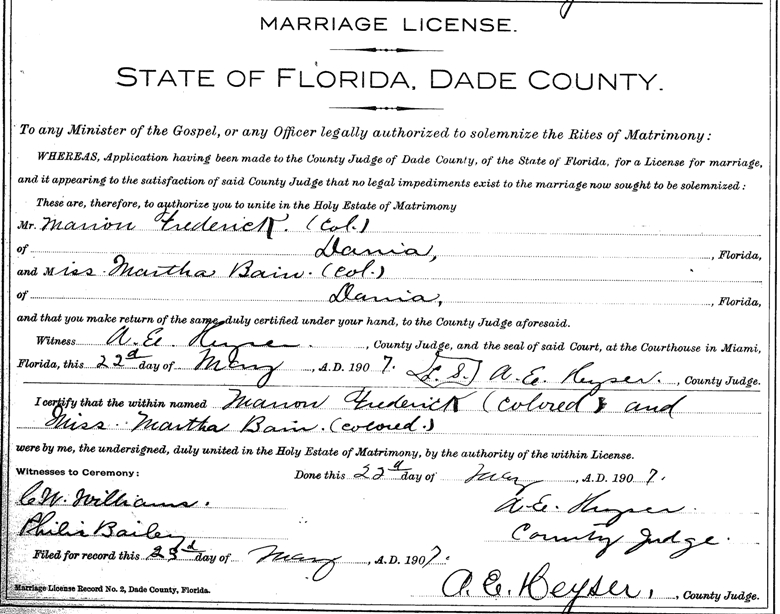 MARRIAGE LICENSE.
STATE OF FLORIDA, DADE COUNTY.
To any Minister of the Gospel, or any Officer legally authorized to solemnize the Rites of Matrimony:
WHEREAS, Application having been made to the County Judge of Dade County, of the State of Florida, for a License for marriage,
and it appearing to the satisfaction of said County Judge that no legal impediments exist to the marriage now sought to be solemnized:
These are, therefore, to authorize you to unite in the Holy Estate of Matrimony
Mr. Marion Frederick. (Col.)
of Dania, , Florida,
and Miss Martha Bain. (Col.)
of Dania, , Florida,
and that you make return of the same duly certified under your hand, to the County Judge aforesaid.
Witness A. E. Heyser. , County Judge, and the seal of said Court, at the Courthouse in Miami,
Florida, this 22d day of May , A.D. 1907. L. S. A. E. Heyser. , County Judge.
I certify that the within named Marion Frederick (colored) and
Miss Martha Bain. (colored.)
were by me, the undersigned, duly united in the Holy Estate of Matrimony, by the authority of the within License.
Witnesses to Ceremony: Done this 22d day of May , A.D. 1907.
C. W. Williams. A. E. Heyser.
Philis Bailey County Judge.
Filed for record this 23d day of May , A.D. 1907.
A. E. Heyser. , County Judge.
Marriage License Record No. 2, Dade County, Florida.